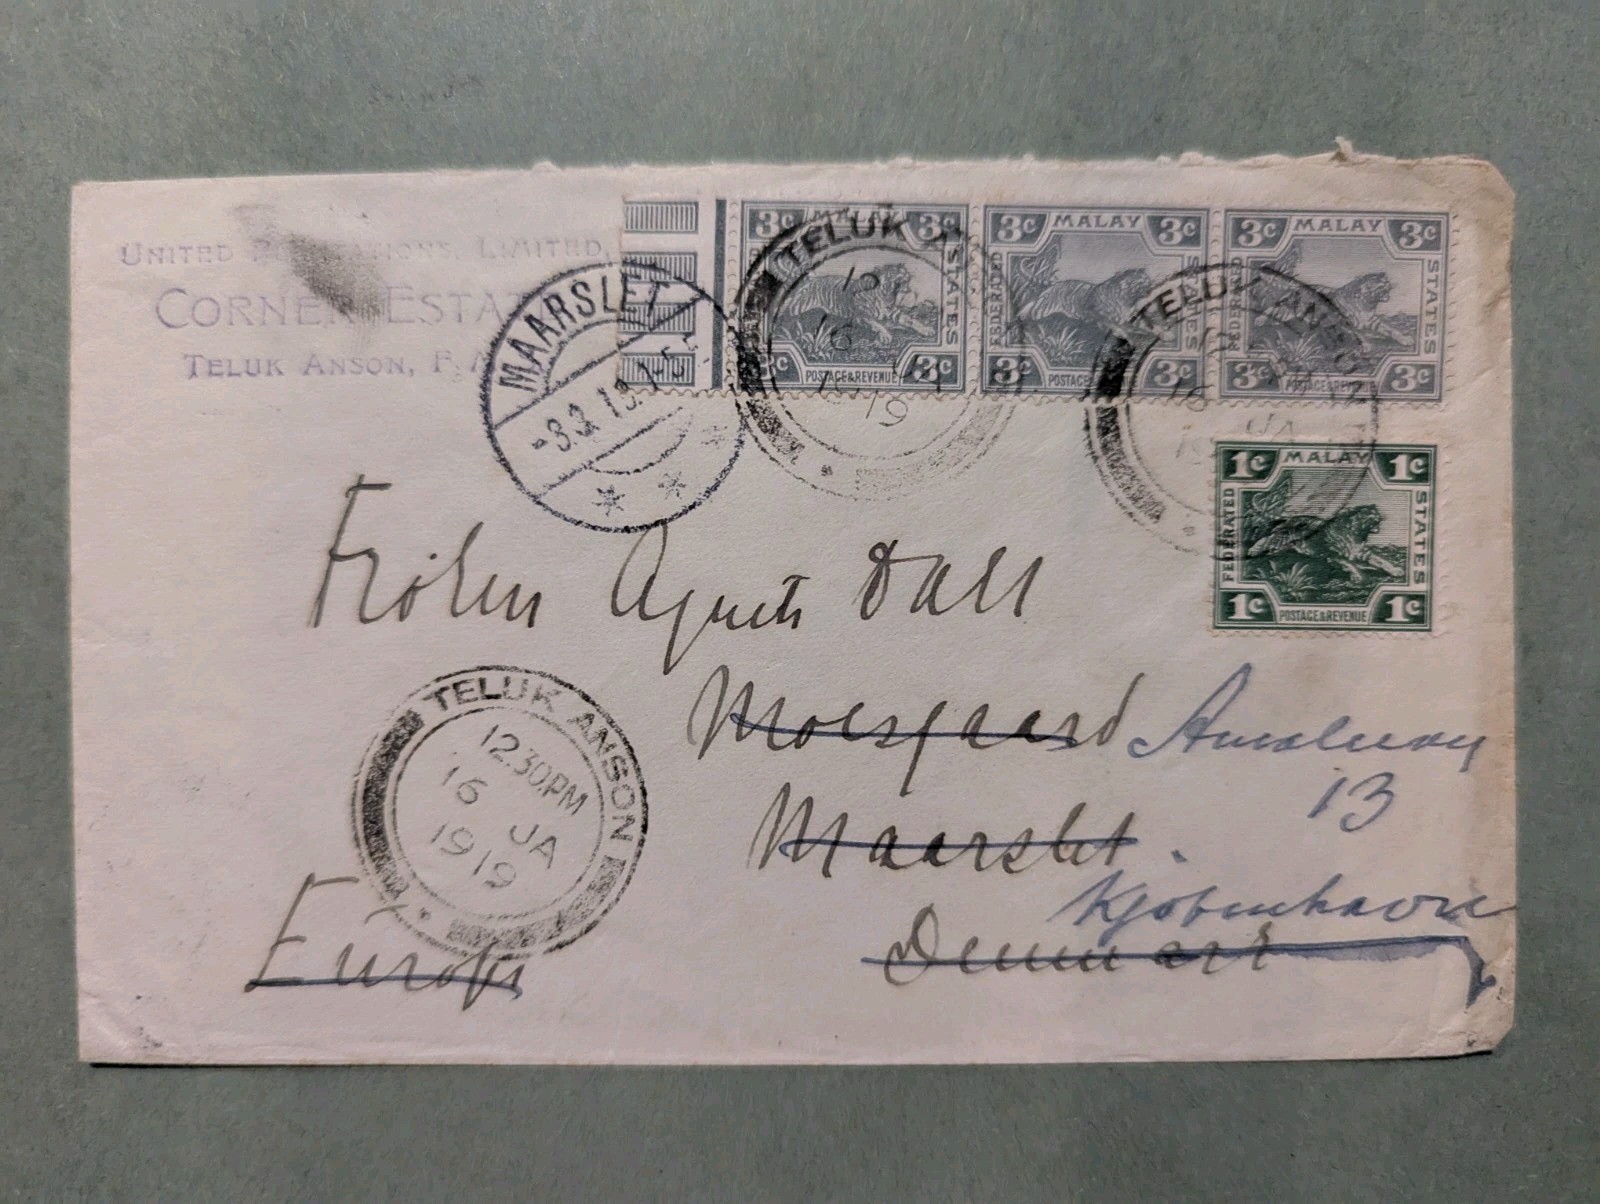 UNITED PLANTATIONS, LIMITED,
CORNER ESTA
TELUK ANSON, F.
3c MALAY 3c
STATES
3c POSTAGE & REVENUE 3c
3c MALAY 3c
FEDERATED STATES
3c POSTAGE 3c
3c MALAY 3c
FEDERATED STATES
3c POSTAGE & REVENUE 3c
TELUK A
16
1919
MAARSLET
-3.3.19.1-5
TELUK ANSON
16 JA
1c MALAY 1c
FEDERATED STATES
1c POSTAGE & REVENUE 1c
Fröken Agnete Dall
Moesgaard
13
Maarslet.
Kjöbenhavn
Denmark
TELUK ANSON
12.30.PM
16 JA
1919
Europe